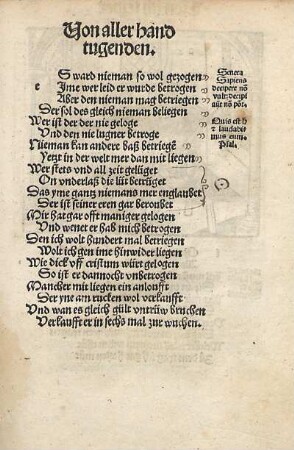 Von aller hand
tugenden.
S ward nieman so wol gezogen
e
Ime wer leid er wurde betrogen
Aber den nieman mag betriegen
Der sol des gleich nieman beliegen
Wer ist der der nie geloge
Vnd den nie lugner betroge
Nieman kan ander baß betriegē
Yetzt in der welt mer dan mit liegen
Wer stets vnd all zeit gelüget
On vnderlaß die lüt betrüget
Das yme gantz niemans mer englaubet
Der ist seiner eren gar beroubet
Mir hat gar offt maniger gelogen
Vnd wenet er hab mich betrogen
Den ich wolt hundert mal betriegen
Wolt ich gen ime hinwider liegen
Wie dick off cristum würt gelogen
So ist er dannocht vnbetrogen
Mancher mit liegen ein anloufft
Der yne am rucken wol verkaufft
Vnd wan es gleich gült vntrüw bruchen
Verkaufft er in sechs mal zur wuchen.
Seneca
Sapiens
decipere nō
vult: decipi
aūt nō pōt.
Quis est h
laudabi
mus eum.
Psal.